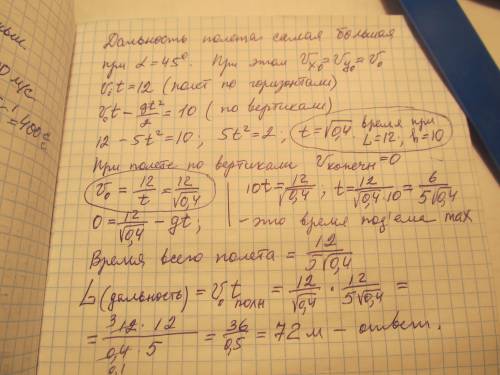 Дальность полета самая большая
при α=45°. При этом Vx₀=Vy₀=V₀
V₀t=12 (полет по горизонтали)
V₀t-gt²/2=10 (по вертикали)
12-5t²=10; 5t²=2, t=√0,4 время при L=12; h=10
При полете по вертикали Vконечн=0
V₀=12/t=12/√0,4 10t=12/√0,4, t=12/√0,4·10=6/5√0,4
0=12/√0,4-gt; - это время под'ема max
Время всего полета=12/5√0,4
L(дальность)=V₀tполн=12/√0,4·12/5√0,4=
=12·12/0,4·5=36/0,5=72м-ответ.